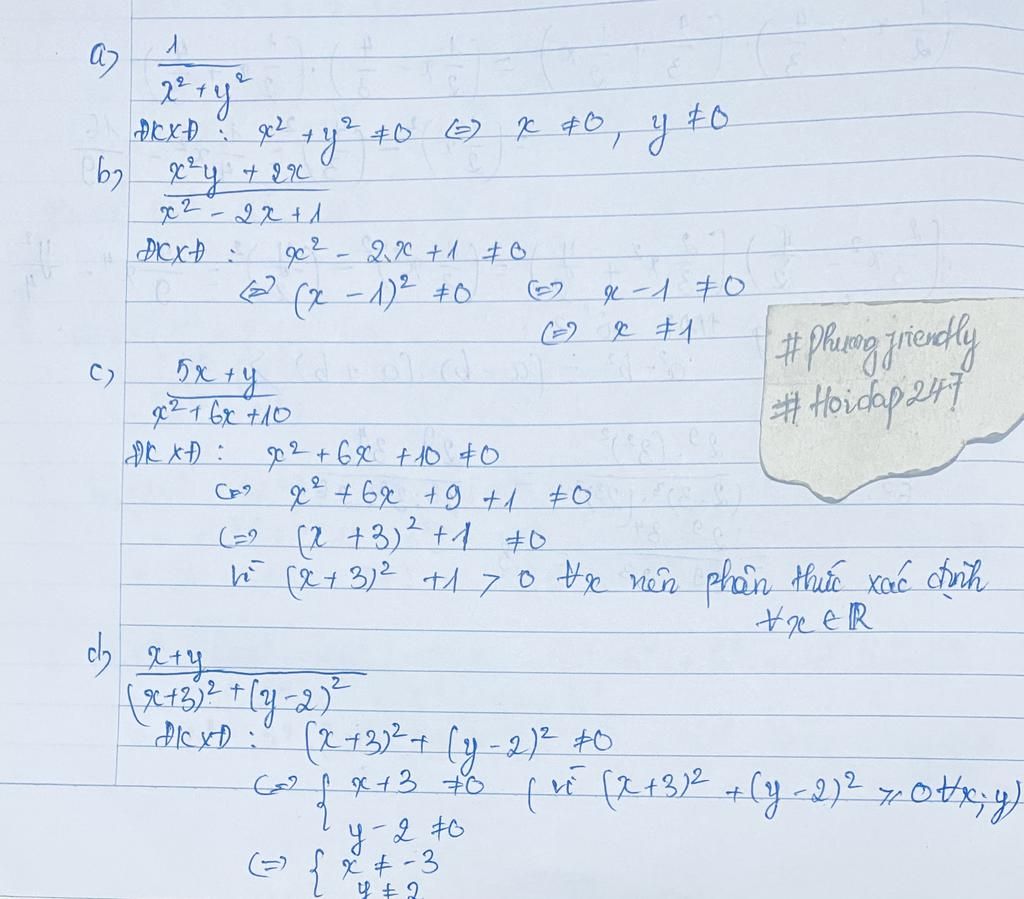 a) 1
x² + y²
ĐKXĐ : x² + y² ≠ 0 <=> x ≠ 0, y ≠ 0
b) x²y + 2x
x² - 2x + 1
ĐKXĐ : x² - 2.x + 1 ≠ 0
<=> (x - 1)² ≠ 0 <=> x - 1 ≠ 0
<=> x ≠ 1
#Phuongfriendly
#Hoidap247
c) 5x + y
x² + 6x + 10
ĐKXĐ : x² + 6x + 10 ≠ 0
<=> x² + 6x + 9 + 1 ≠ 0
<=> (x + 3)² + 1 ≠ 0
Vì (x + 3)² + 1 > 0 ∀x nên phân thức xác định
∀x ∈ ℝ
d) x + y
(x+3)² + (y-2)²
ĐKXĐ : (x+3)² + (y-2)² ≠ 0
<=> { x + 3 ≠ 0 (vì (x+3)² + (y-2)² ⩾ 0 ∀x; y)
y - 2 ≠ 0
<=> { x ≠ -3
y ≠ 2